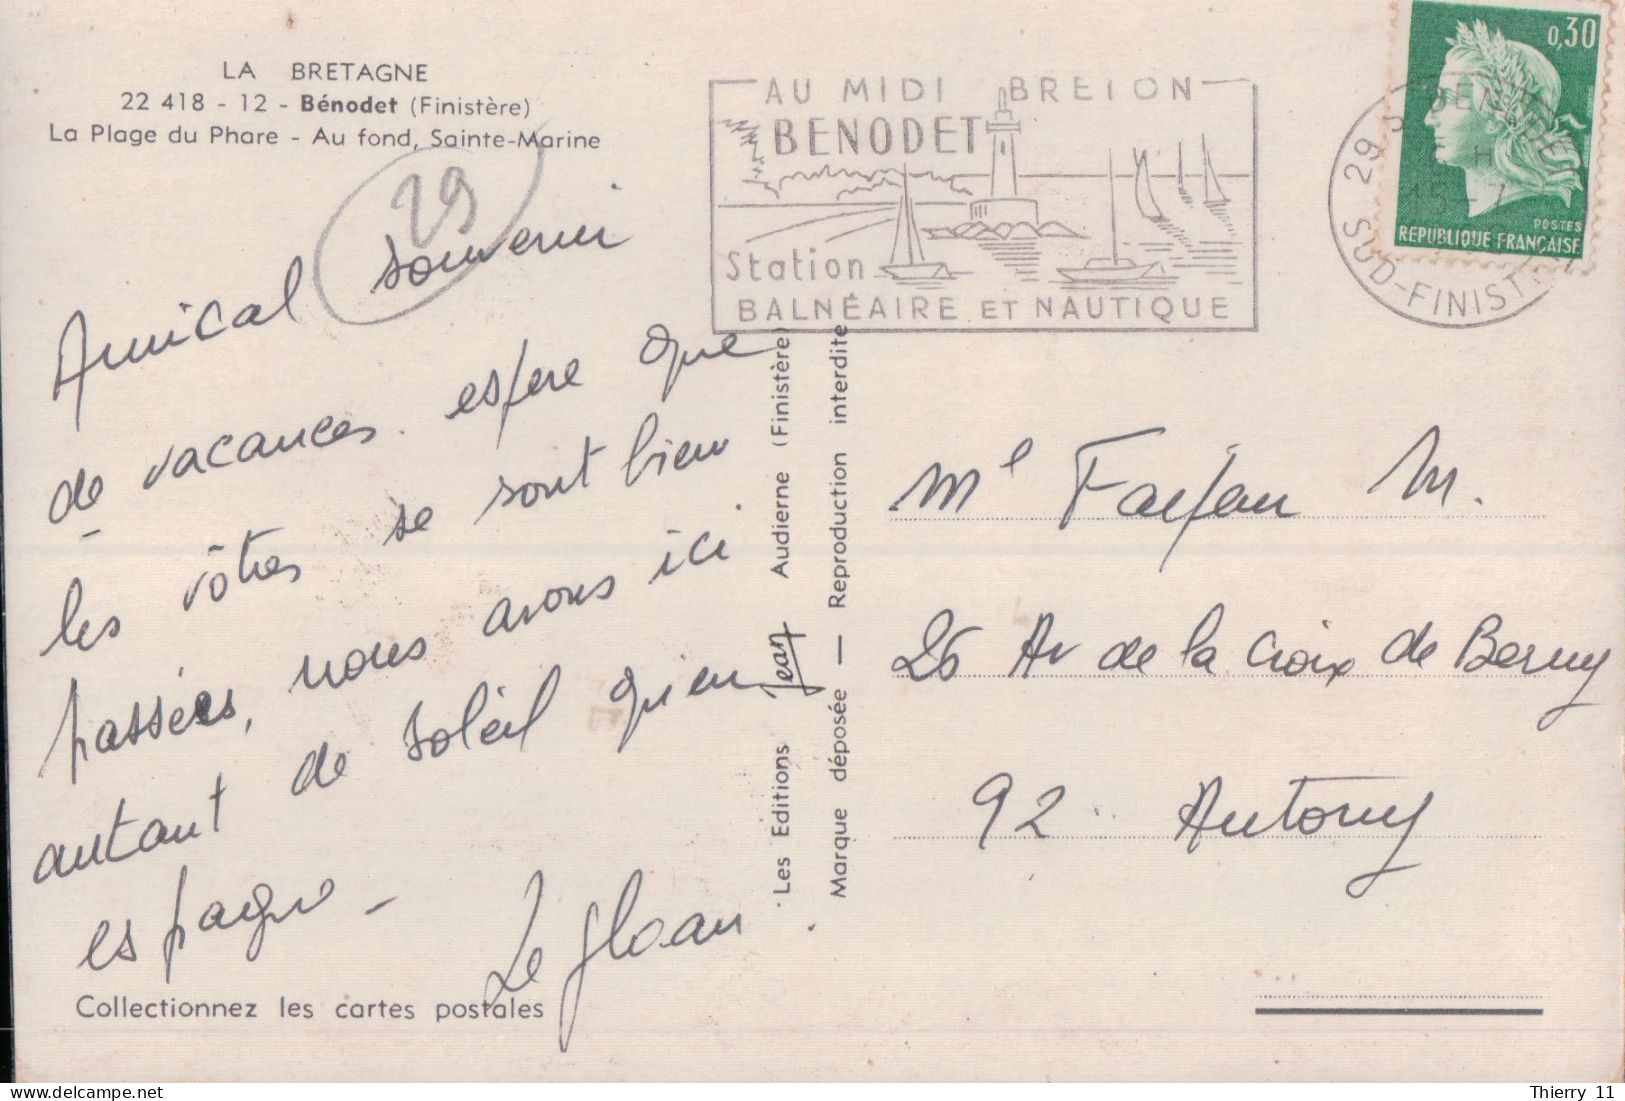 LA BRETAGNE
22 418 - 12 - Bénodet (Finistère)
La Plage du Phare - Au fond, Sainte-Marine
29
Amical souvenir
de vacances. espere que
les vôtres se sont bien
passées, nous avons ici
autant de soleil qu'en
espagne -
Collectionnez les cartes postales
AU MIDI BRETON
BENODET
Station
BALNÉAIRE ET NAUTIQUE
0,30
POSTES
REPUBLIQUE FRANÇAISE
29 S
BENODET
H
15-7
SUD-FINIST
Les Editions Jean Audierne (Finistère)
Marque déposée — Reproduction interdite
M. 
26 Av de la Croix de Berny
92 Antony
Thierry 11